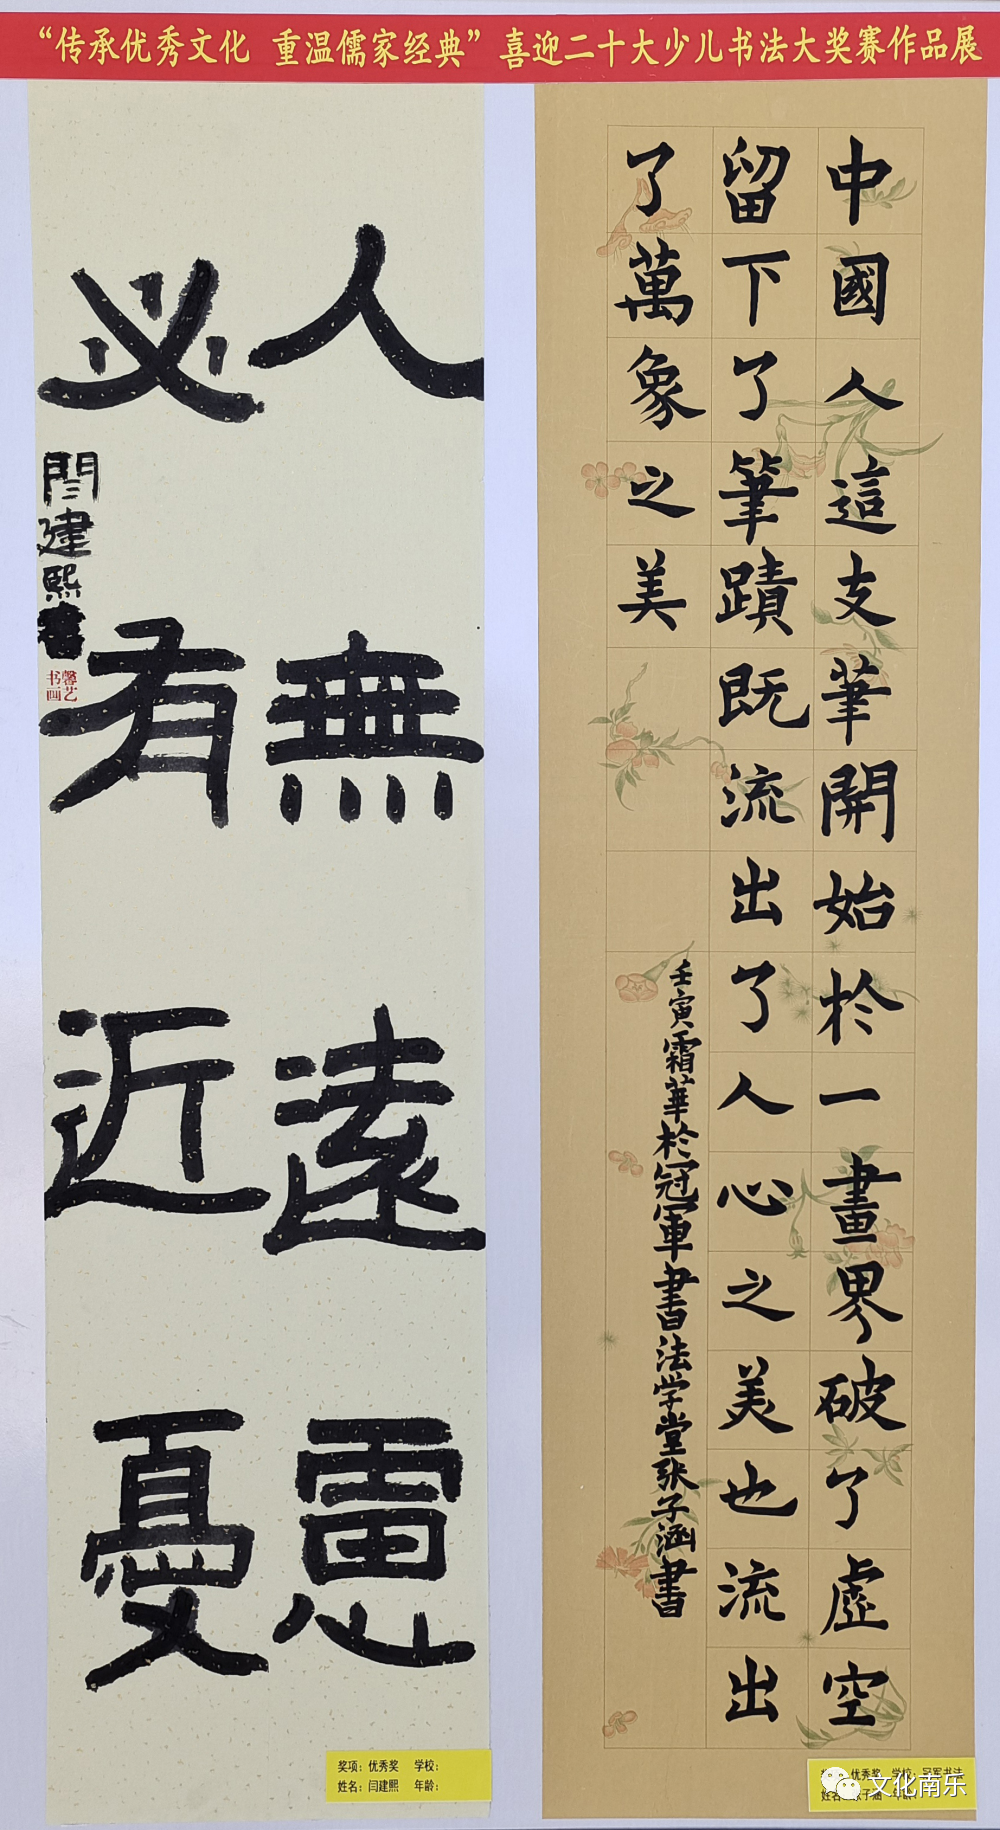 “传承优秀文化 重温儒家经典”喜迎二十大少儿书法大奖赛作品展
人無遠慮
必有近憂
閆建熙書
馨艺
书画
中國人這支筆開始於一畫界破了虛空
留下了筆蹟既流出了人心之美也流出
了萬象之美
壬寅霜華於冠軍書法学堂张子涵書
奖项：优秀奖 学校：
姓名：闫建熙 年龄：
优秀奖 学校：冠军书法
姓名 子涵 年龄
文化南乐